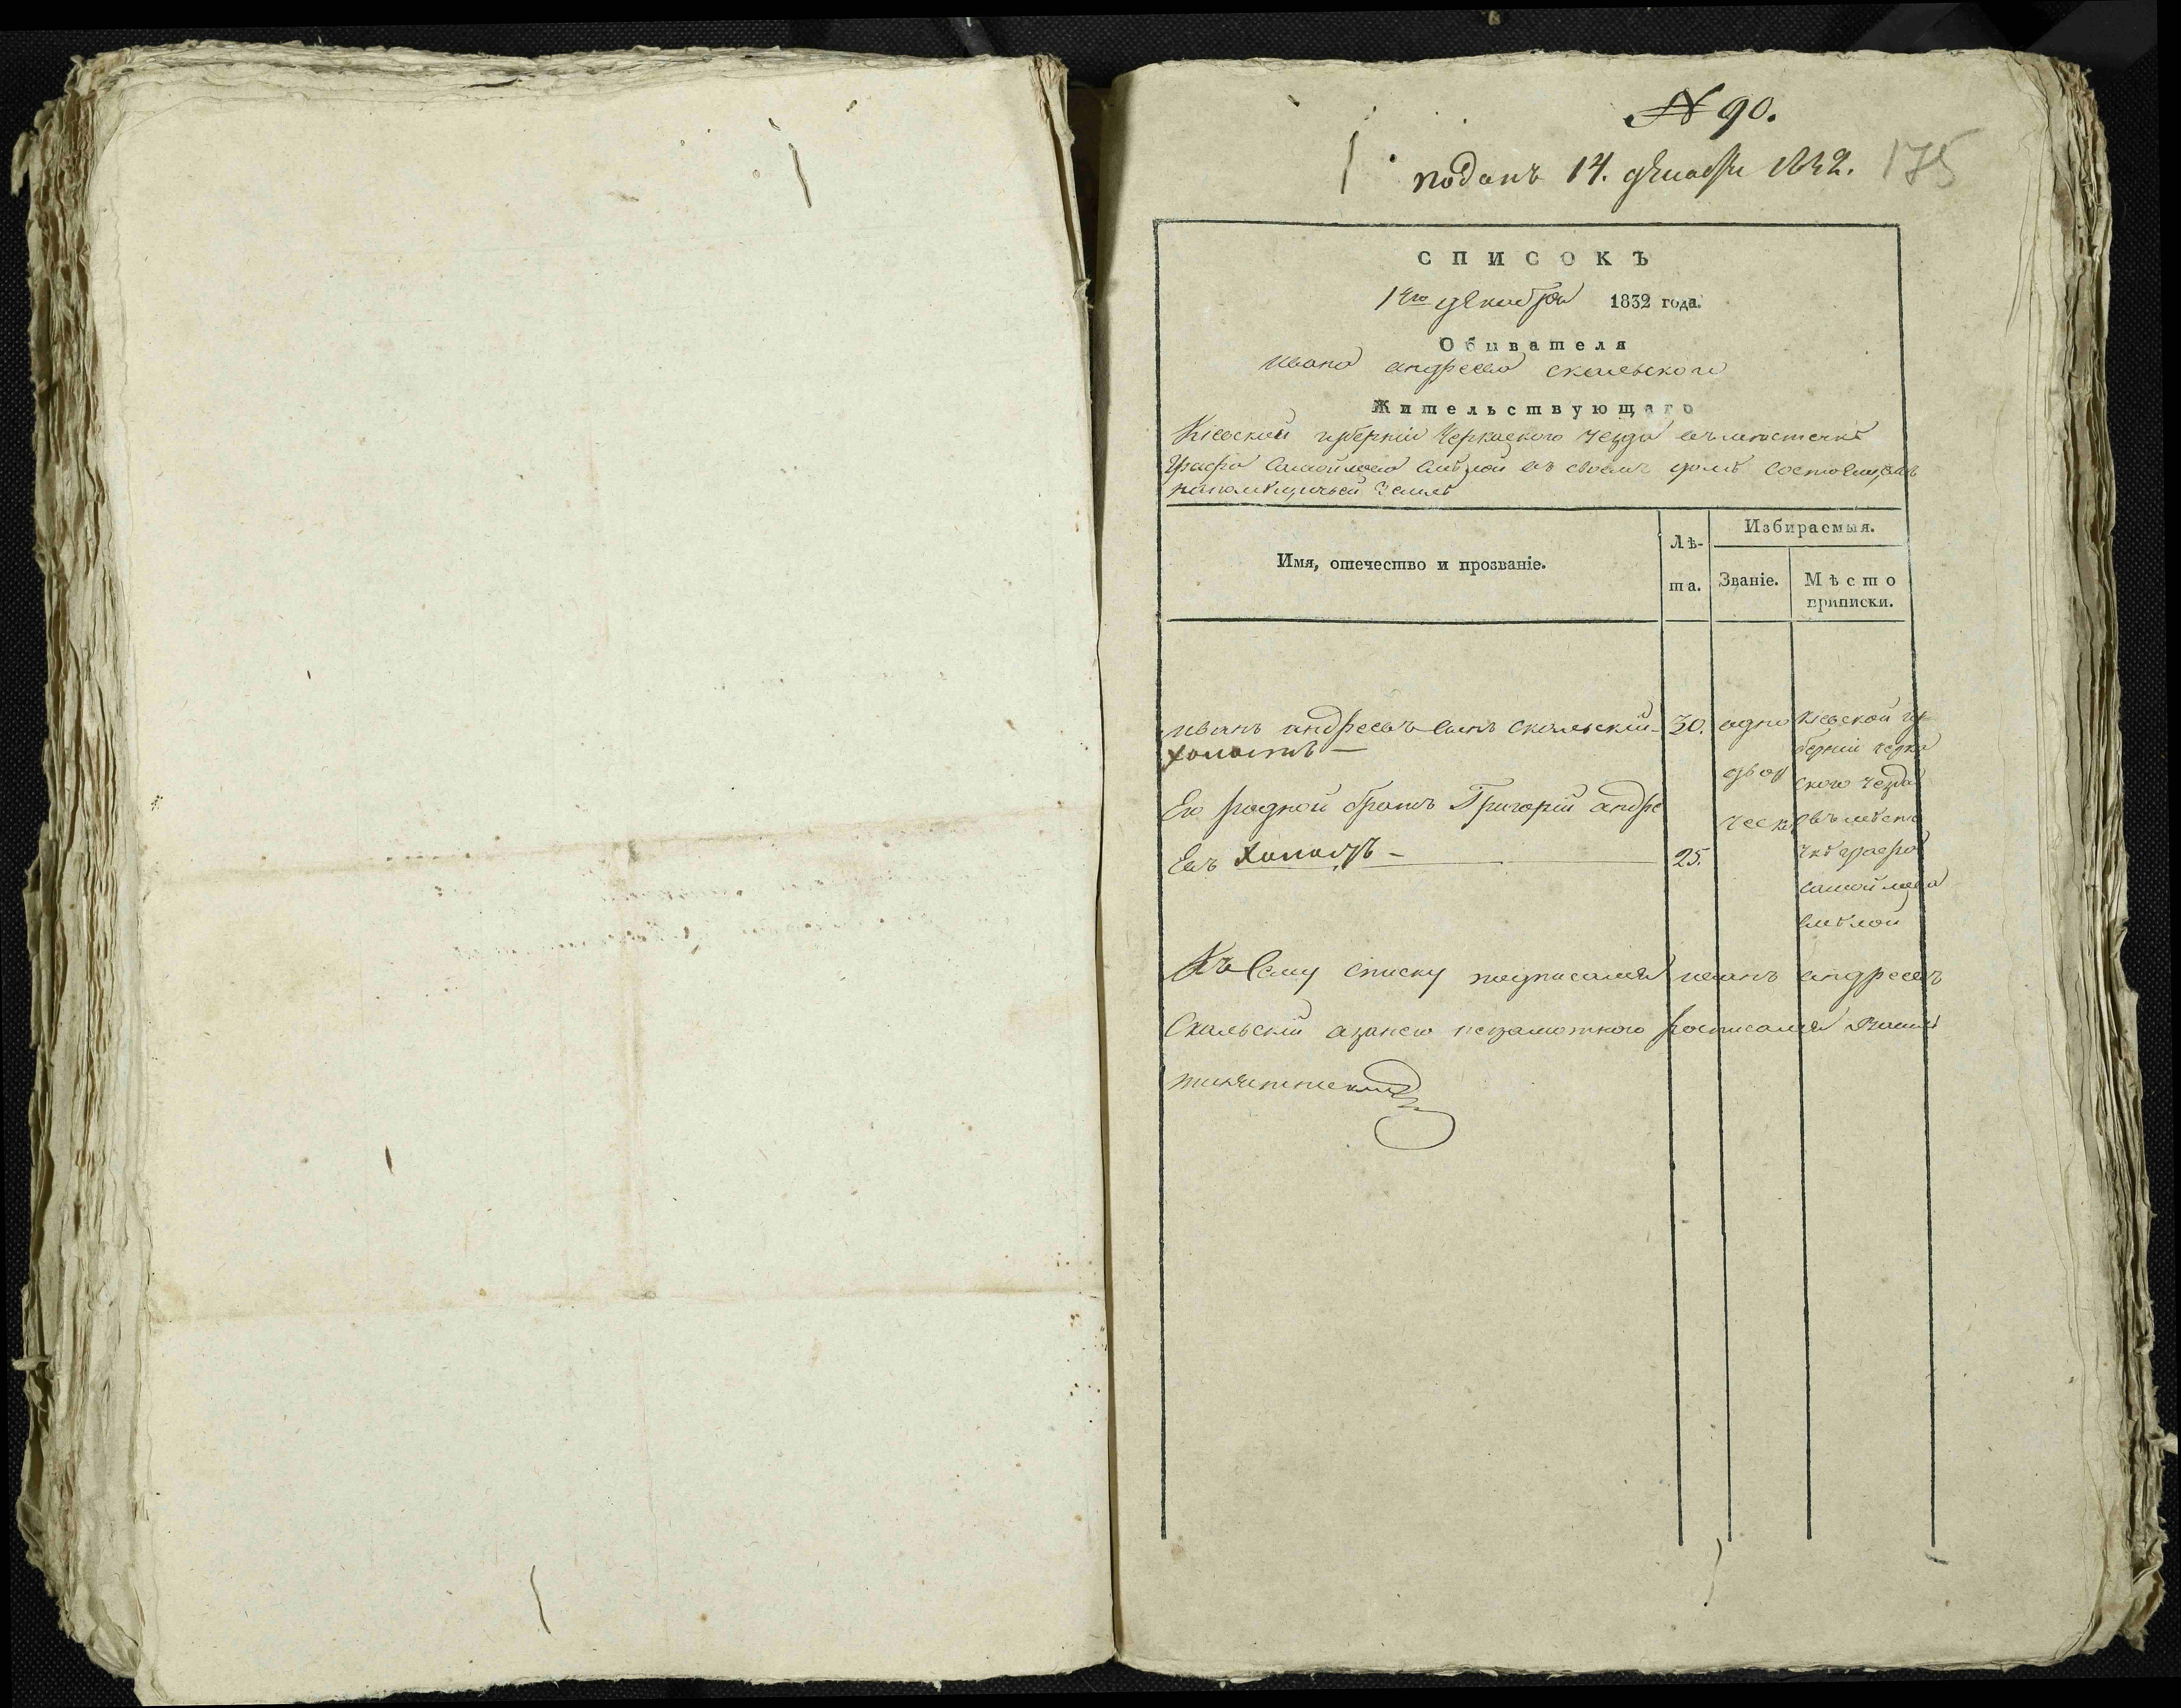 № 90.
поданъ 14. декабря 1832.
175
СПИСОКЪ
1го декабря 1832 года.
Обывателя
ивана андреева скальского
Жительствующаго
Кіевской губерніи Черкаского уезда въ местечке
Графа Самойлова Смелой въ своемъ доме состоящемъ
напомещичьей земле
Имя, отечество и прозваніе.
Лѣ-
та.
Избираемыя.
Званіе.
Мѣсто
приписки.
иванъ андреевъ сынъ скальскій 30.
холостъ —
Его родной братъ Григорій андре
евъ холостъ — 25.
одно
двор
ческ
кіевской гу
берніи черка
ского уезда
въ месте
чке графа
самойлова
смелой
Къ сему списку подписался иванъ андреевъ
Скальскій азанего неграмотного росписался